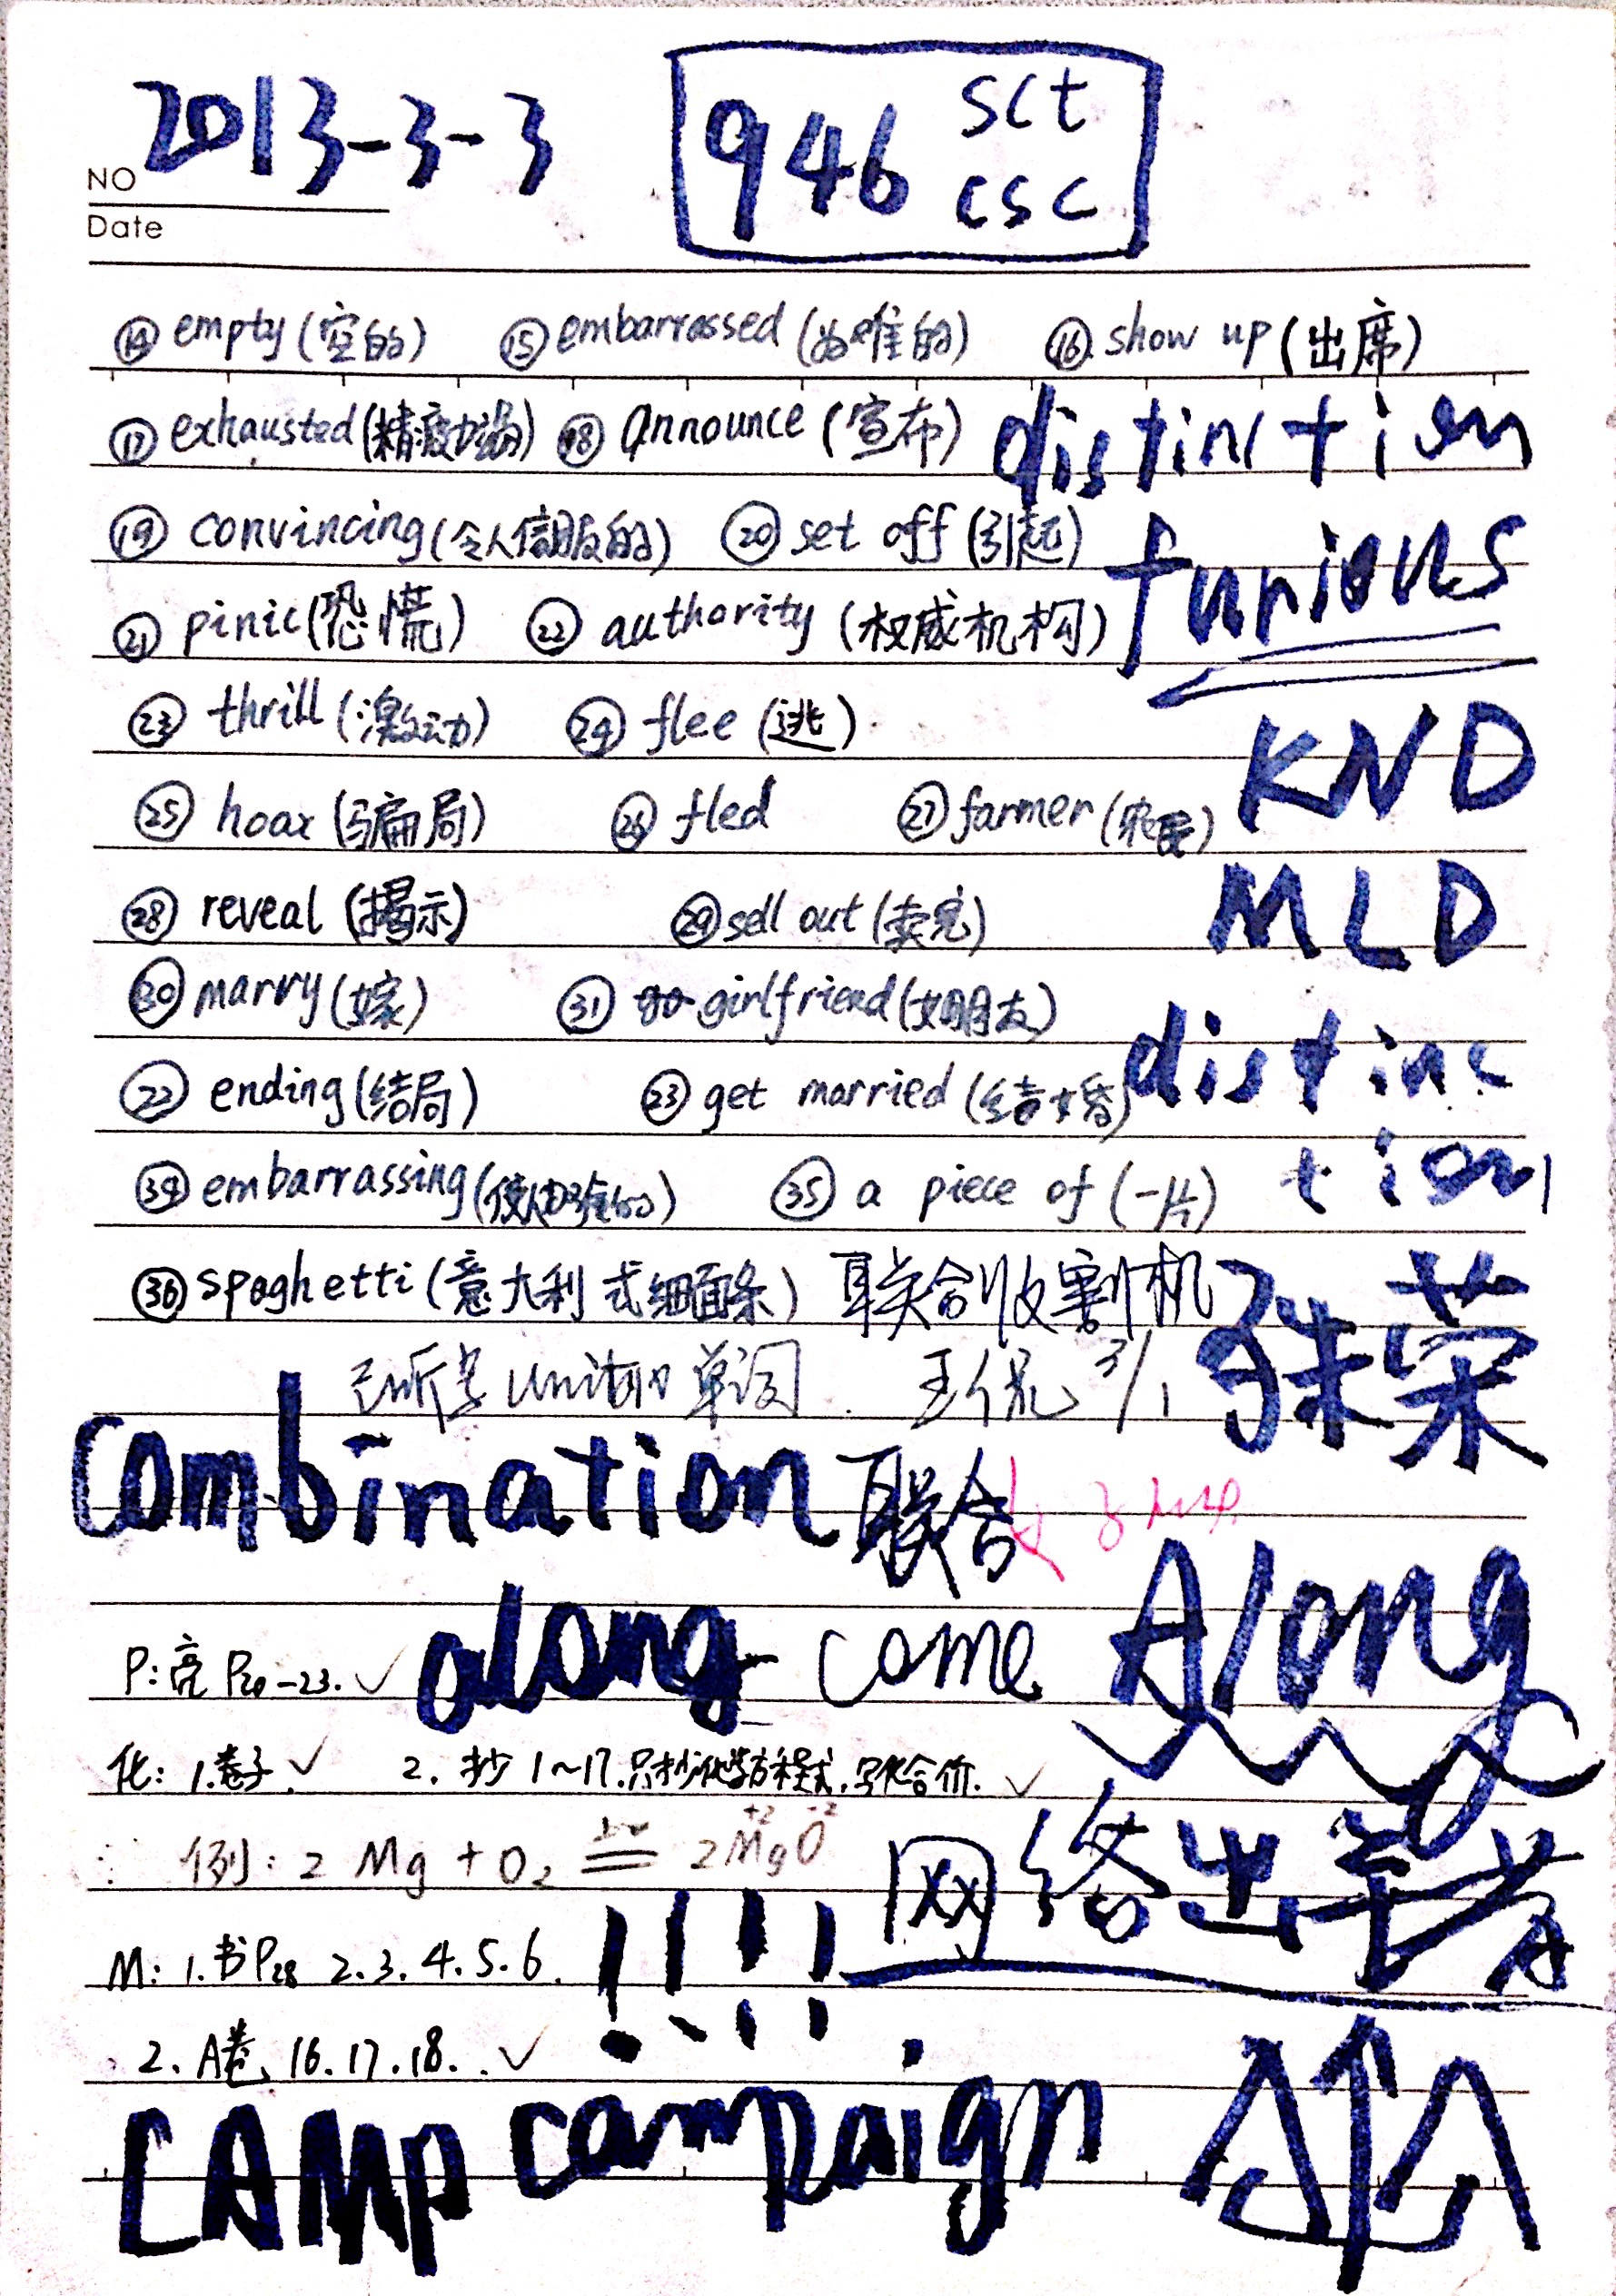 2013-3-3
946 sct
csc
NO
Date
⑭ empty (空的) ⑮ embarrassed (为难的) ⑯ show up (出席)
⑰ exhausted (精疲力竭的) ⑱ announce (宣布) distinction
⑲ convincing (令人信服的) ⑳ set off (引起)
furious
㉑ pinic (恐慌) ㉒ authority (权威机构)
㉓ thrill (激动) ㉔ flee (逃)
KND
㉕ hoax (骗局) ㉖ fled ㉗ farmer (农民)
㉘ reveal (揭示) ㉙ sell out (卖完) MLD
㉚ marry (嫁) ㉛ girlfriend (女朋友)
㉒ ending (结局) ㉓ get married (结婚) distinc
㉞ embarrassing ㉟ a piece of (一片) tion
㊱ spaghetti (意大利式细面条) 联合收割机
殊荣
已听写 Unit10 单词 王侃 3/1
combination 联合
P: 完 P20-23. ✓ along come Along
化: 1.卷子 ✓ 2. 抄 1~17.只抄化学方程式.写化合价. ✓
例: 2Mg + O₂ = 2MgO +2 -2
网络出手者
M: 1. 书P28 2.3.4.5.6. !!!!
2. A卷 16.17.18. ✓
CAMP campaign